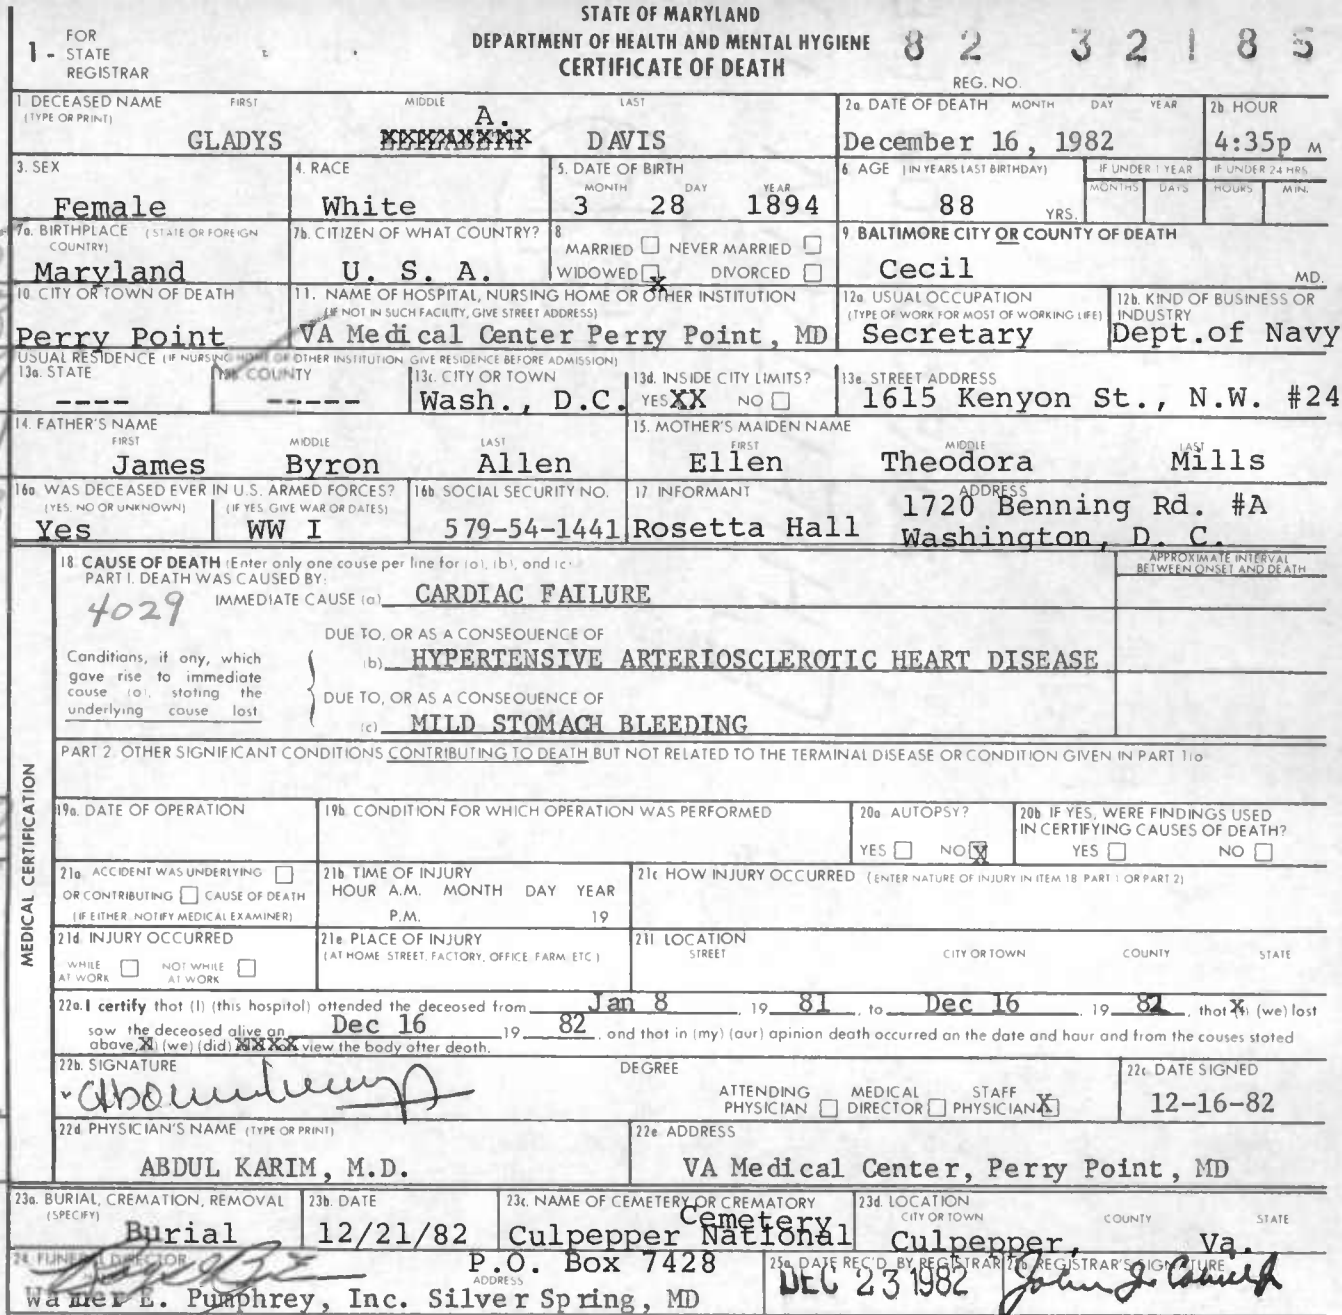 STATE OF MARYLAND
DEPARTMENT OF HEALTH AND MENTAL HYGIENE
CERTIFICATE OF DEATH
1 - FOR STATE REGISTRAR
82 32185
REG. NO.
1 DECEASED NAME (TYPE OR PRINT) FIRST MIDDLE LAST
GLADYS A. DAVIS
2a DATE OF DEATH MONTH DAY YEAR
December 16, 1982
2b HOUR
4:35p M
3. SEX
Female
4. RACE
White
5. DATE OF BIRTH MONTH DAY YEAR
3 28 1894
6 AGE (IN YEARS LAST BIRTHDAY)
88 YRS.
IF UNDER 1 YEAR MONTHS DAYS
IF UNDER 24 HRS HOURS MIN.
7a. BIRTHPLACE (STATE OR FOREIGN COUNTRY)
Maryland
7b. CITIZEN OF WHAT COUNTRY?
U. S. A.
8 MARRIED NEVER MARRIED
WIDOWED X DIVORCED
9 BALTIMORE CITY OR COUNTY OF DEATH
Cecil MD.
10. CITY OR TOWN OF DEATH
Perry Point
11. NAME OF HOSPITAL, NURSING HOME OR OTHER INSTITUTION
(IF NOT IN SUCH FACILITY, GIVE STREET ADDRESS)
VA Medical Center Perry Point, MD
12a USUAL OCCUPATION
(TYPE OF WORK FOR MOST OF WORKING LIFE)
Secretary
12b. KIND OF BUSINESS OR INDUSTRY
Dept.of Navy
USUAL RESIDENCE (IF NURSING HOME OR OTHER INSTITUTION GIVE RESIDENCE BEFORE ADMISSION)
13a. STATE
----
13b COUNTY
-----
13c. CITY OR TOWN
Wash., D.C.
13d. INSIDE CITY LIMITS?
YES XX NO
13e STREET ADDRESS
1615 Kenyon St., N.W. #24
14. FATHER'S NAME FIRST MIDDLE LAST
James Byron Allen
15. MOTHER'S MAIDEN NAME FIRST MIDDLE LAST
Ellen Theodora Mills
16a WAS DECEASED EVER IN U.S. ARMED FORCES?
(YES, NO OR UNKNOWN) (IF YES, GIVE WAR OR DATES)
Yes WW I
16b SOCIAL SECURITY NO.
579-54-1441
17 INFORMANT ADDRESS
Rosetta Hall
1720 Benning Rd. #A
Washington, D. C.
18 CAUSE OF DEATH (Enter only one cause per line for (a), (b), and (c)
APPROXIMATE INTERVAL BETWEEN ONSET AND DEATH
PART I. DEATH WAS CAUSED BY:
4029
IMMEDIATE CAUSE (a) CARDIAC FAILURE
DUE TO, OR AS A CONSEQUENCE OF
Conditions, if any, which gave rise to immediate cause (a), stating the underlying cause last
(b) HYPERTENSIVE ARTERIOSCLEROTIC HEART DISEASE
DUE TO, OR AS A CONSEQUENCE OF
(c) MILD STOMACH BLEEDING
PART 2. OTHER SIGNIFICANT CONDITIONS CONTRIBUTING TO DEATH BUT NOT RELATED TO THE TERMINAL DISEASE OR CONDITION GIVEN IN PART 1(a
MEDICAL CERTIFICATION
19a. DATE OF OPERATION
19b. CONDITION FOR WHICH OPERATION WAS PERFORMED
20a AUTOPSY?
YES NO X
20b IF YES, WERE FINDINGS USED IN CERTIFYING CAUSES OF DEATH?
YES NO
21a ACCIDENT WAS UNDERLYING
OR CONTRIBUTING CAUSE OF DEATH
(IF EITHER NOTIFY MEDICAL EXAMINER)
21b TIME OF INJURY
HOUR A.M. MONTH DAY YEAR
P.M. 19
21c HOW INJURY OCCURRED (ENTER NATURE OF INJURY IN ITEM 18 PART 1 OR PART 2)
21d INJURY OCCURRED
WHILE AT WORK NOT WHILE AT WORK
21e PLACE OF INJURY
(AT HOME STREET, FACTORY, OFFICE, FARM, ETC)
21f LOCATION
STREET CITY OR TOWN COUNTY STATE
22a. I certify that (I) (this hospital) attended the deceased from Jan 8, 19 81, to Dec 16, 19 82, that X (we) last
saw the deceased alive on Dec 16 19 82, and that in (my) (our) opinion death occurred on the date and hour and from the causes stated
above, X (we) (did) XXXX view the body after death.
22b. SIGNATURE
DEGREE
ATTENDING PHYSICIAN MEDICAL DIRECTOR STAFF PHYSICIAN X
22c DATE SIGNED
12-16-82
22d PHYSICIAN'S NAME (TYPE OR PRINT)
ABDUL KARIM, M.D.
22e ADDRESS
VA Medical Center, Perry Point, MD
23a. BURIAL, CREMATION, REMOVAL (SPECIFY)
Burial
23b. DATE
12/21/82
23c. NAME OF CEMETERY OR CREMATORY
Cemetery
Culpepper National
23d. LOCATION CITY OR TOWN COUNTY STATE
Culpepper, Va.
24 FUNERAL DIRECTOR ADDRESS
P.O. Box 7428
Warner E. Pumphrey, Inc. Silver Spring, MD
25a DATE REC'D BY REGISTRAR
DEC 23 1982
25b REGISTRAR'S SIGNATURE